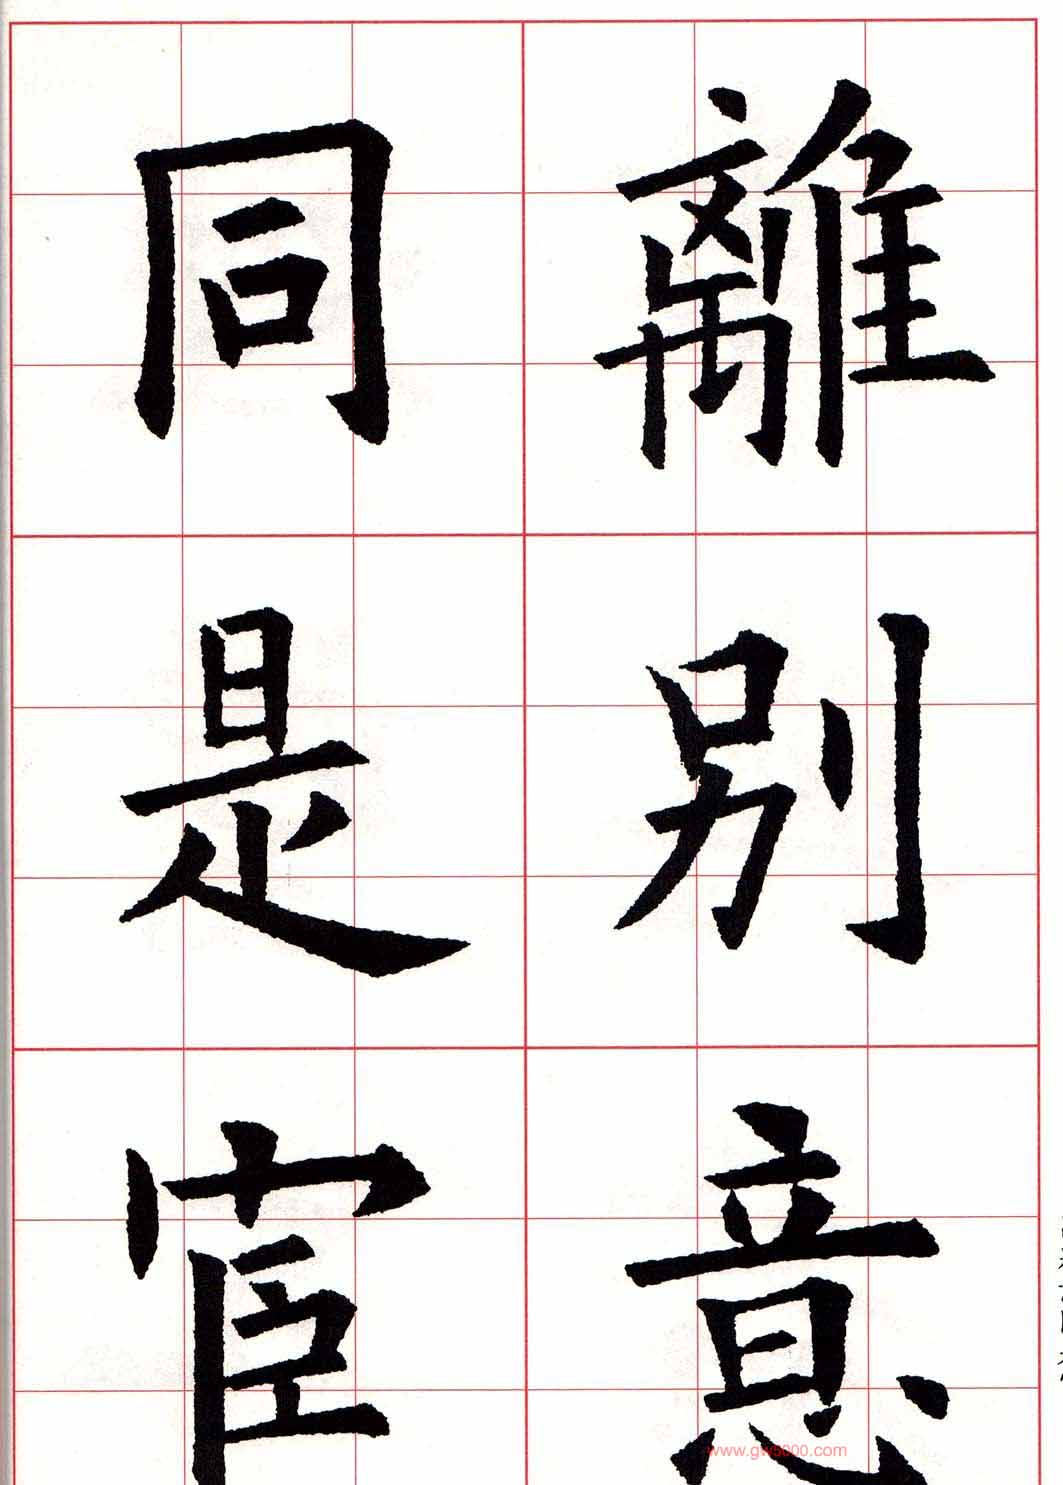 離別意
同是宦
www.gw5000.com